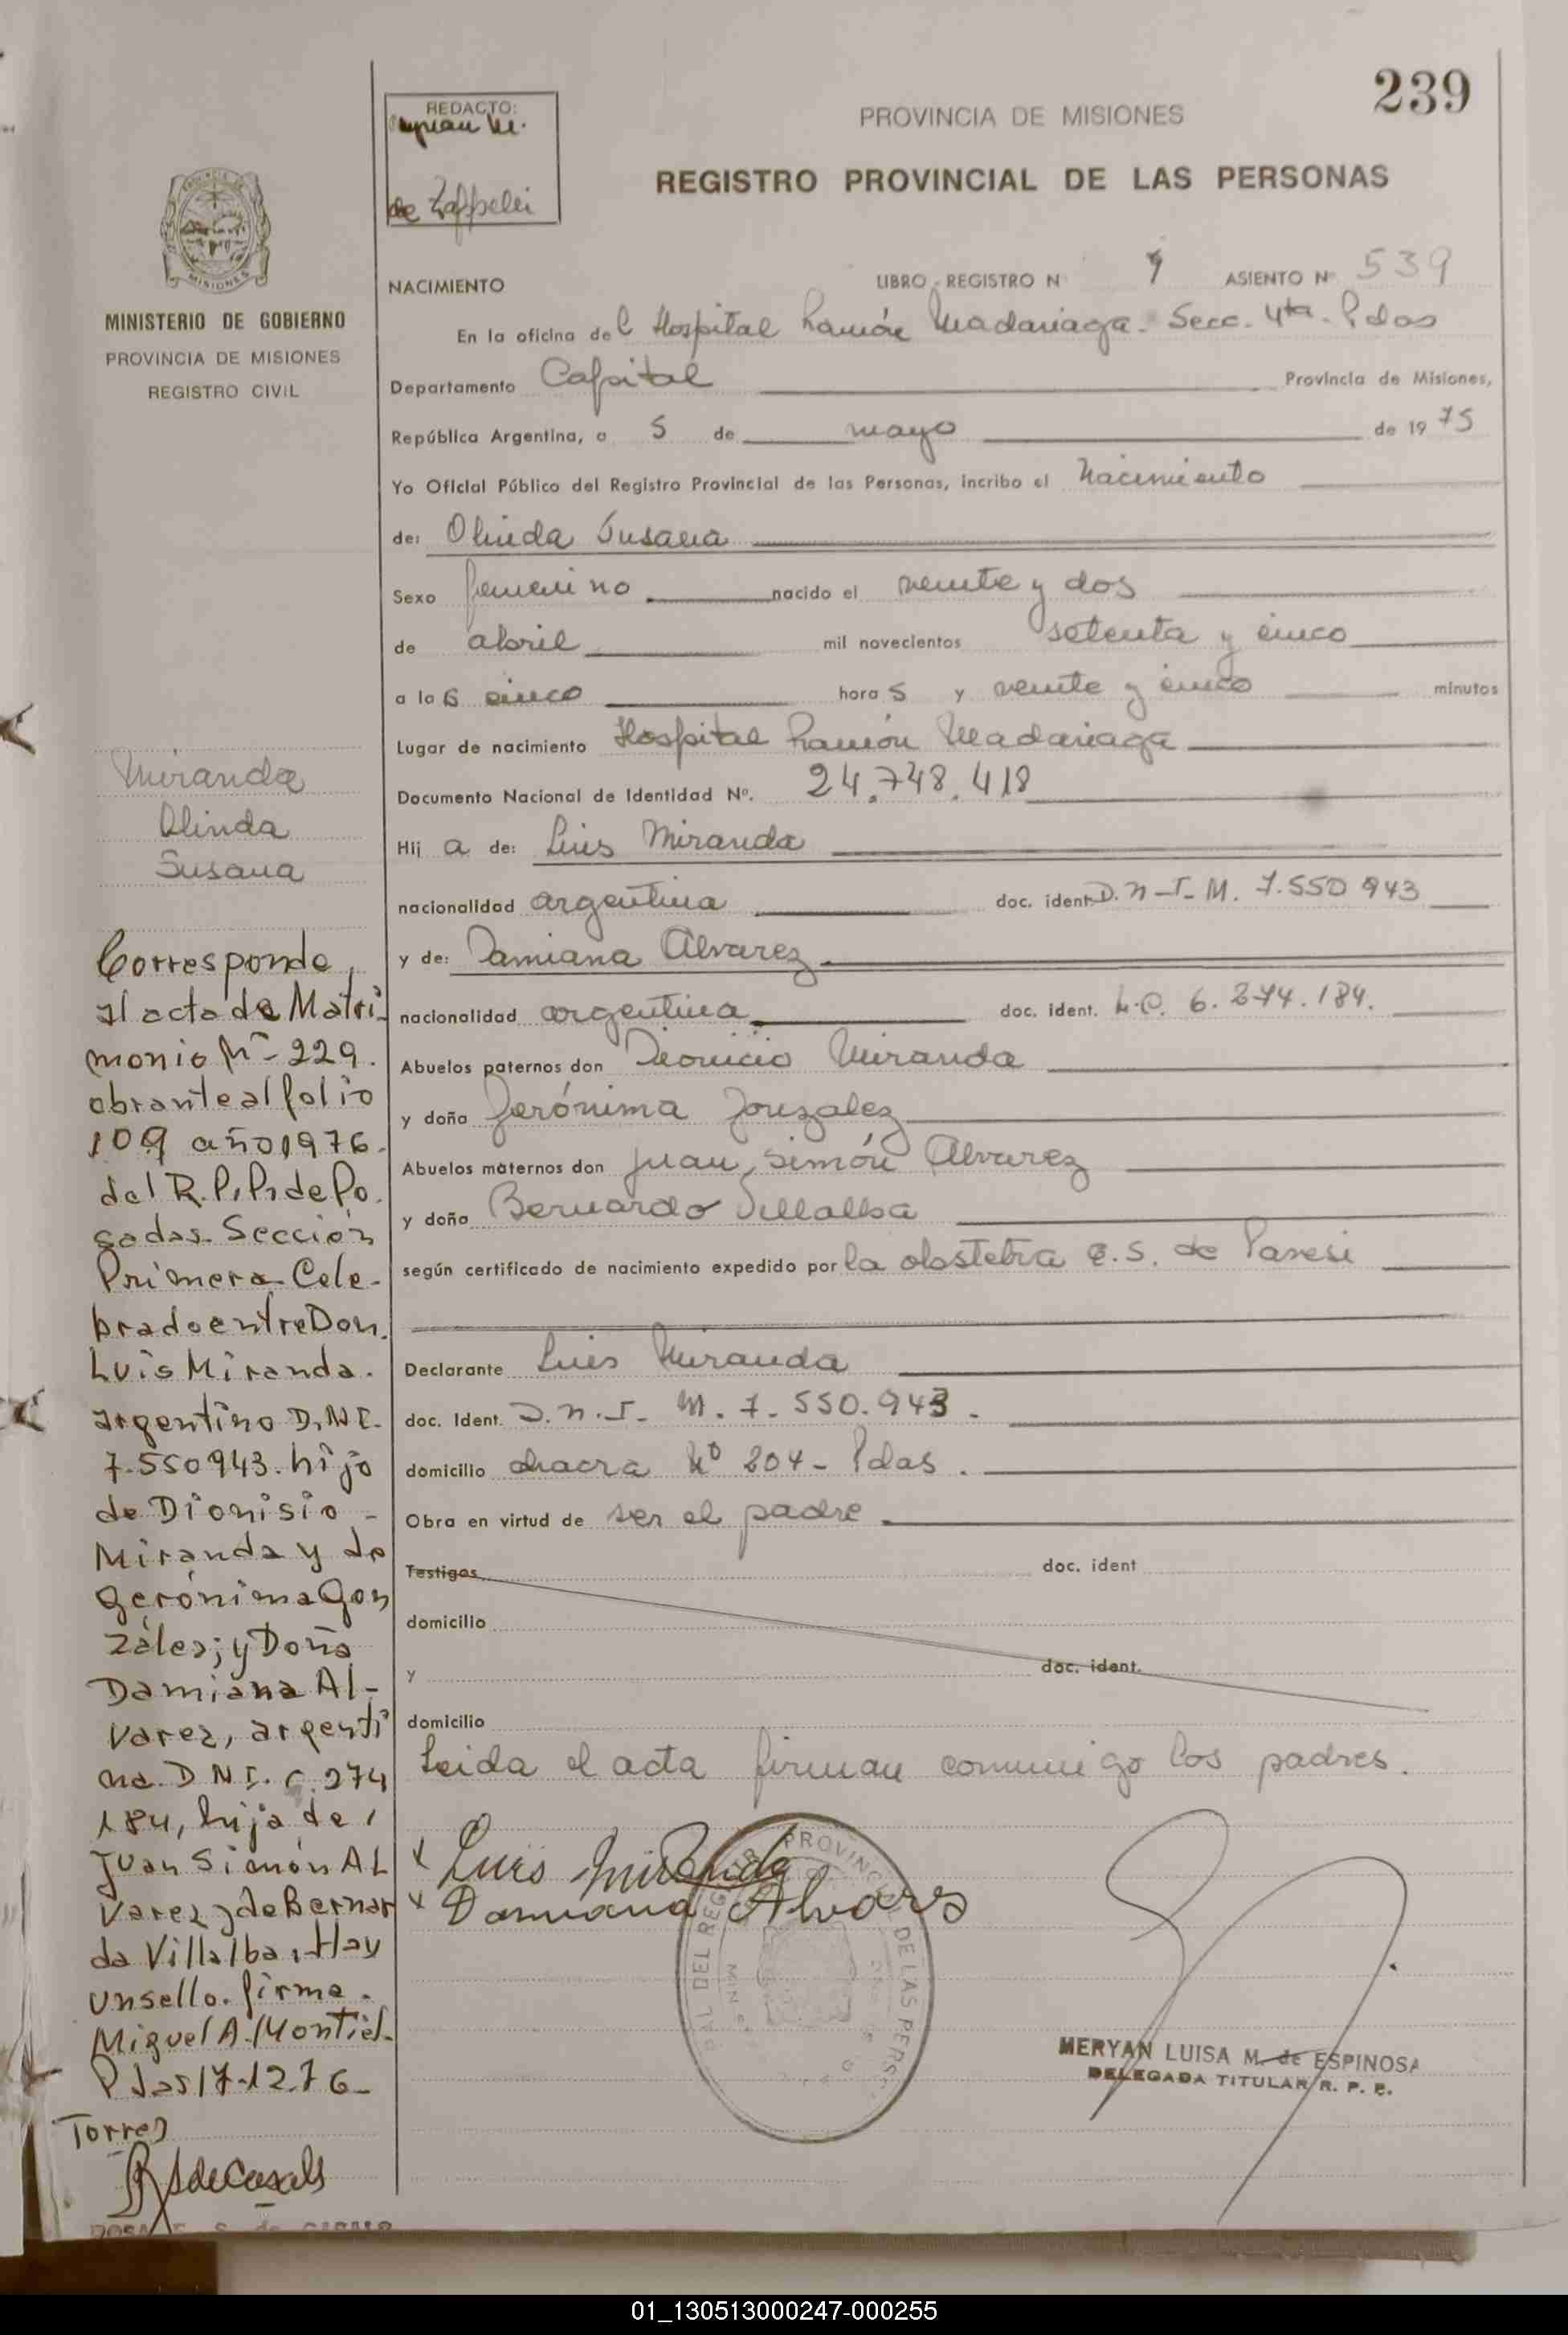 239
REDACTO:
de Zappelli
PROVINCIA DE MISIONES
REGISTRO PROVINCIAL DE LAS PERSONAS
MINISTERIO DE GOBIERNO
PROVINCIA DE MISIONES
REGISTRO CIVIL
NACIMIENTO LIBRO - REGISTRO N ASIENTO Nº 539
En la oficina del Hospital Ramón Madariaga. Secc. 4ta. Pdas
Departamento Capital Provincia de Misiones,
República Argentina, a 5 de mayo de 1975
Yo Oficial Público del Registro Provincial de las Personas, incribo el Nacimiento
de: Olinda Susana
Sexo femenino nacido el veinte y dos
de abril mil novecientos setenta y cinco
a las cinco horas y veinte y cinco minutos
Lugar de nacimiento Hospital Ramón Madariaga
Documento Nacional de Identidad Nº. 24.748.418
Hija de: Luis Miranda
nacionalidad argentina doc. ident. D.N-I-M. 7.550 943
y de: Damiana Alvarez
nacionalidad argentina doc. ident. L.C. 6.274.184.
Abuelos paternos don Dionicio Miranda
y doña Jerónima Gonzalez
Abuelos maternos don Juan Simón Alvarez
y doña Bernardo Villalba
según certificado de nacimiento expedido por la obstetra E.S. de Paresi
Declarante Luis Miranda
doc. Ident. D.N.I- M. 7-550.943.
domicilio chacra Nº 204- Pdas.
Obra en virtud de ser el padre
Testigos doc. ident
domicilio
y doc. ident.
domicilio
Leida el acta firman conmigo los padres.
x Luis Miranda
x Damiana Alvares
MERYAN LUISA M. de ESPINOSA
DELEGADA TITULAR R. P. P.
Miranda
Olinda
Susana
Corresponde
al acta de Matri-
monio Nº- 229.
obrante al folio
109 año 1976.
del R.P.P. de Po.
sadas. Sección
Primera Cele-
brado entre Don.
Luis Miranda.
argentino D.N.I.
7.550943. hijo
de Dionisio -
Miranda y de
Gerónima Gon
zález; y Doña
Damiana Al-
varez, argenti
na. D N I. 6.274
184, hija de
Juan Simón AL
varez y de Bernar
da Villalba. Hay
un sello. firma.
Miguel A. Montiel.
Pdas 17-12-76-
Torres
01_130513000247-000255